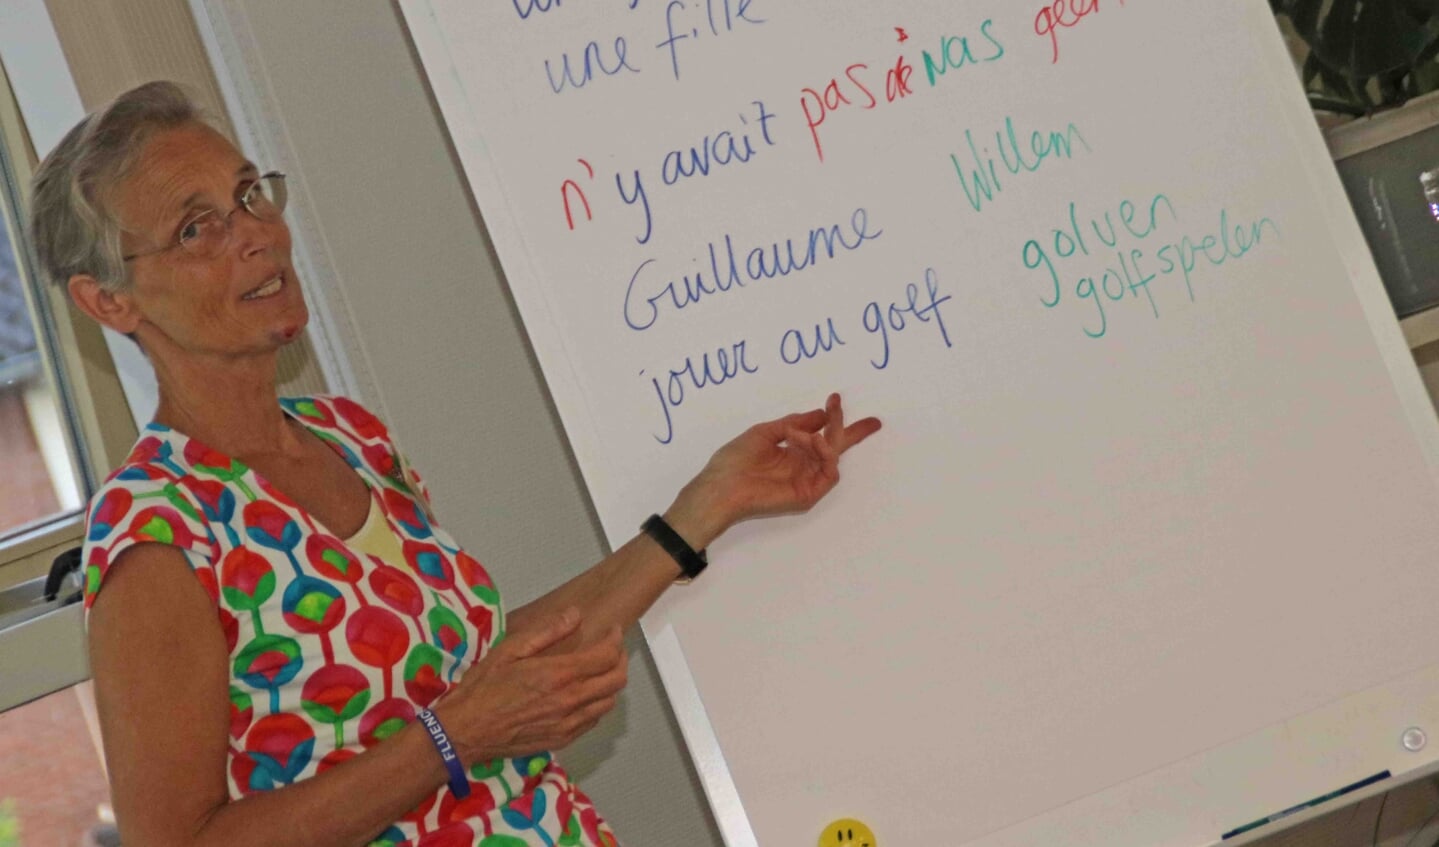 une fille
n'y avait pas de was geen
Guillaume Willem
jouer au golf golven
golfspelen
FLUENC